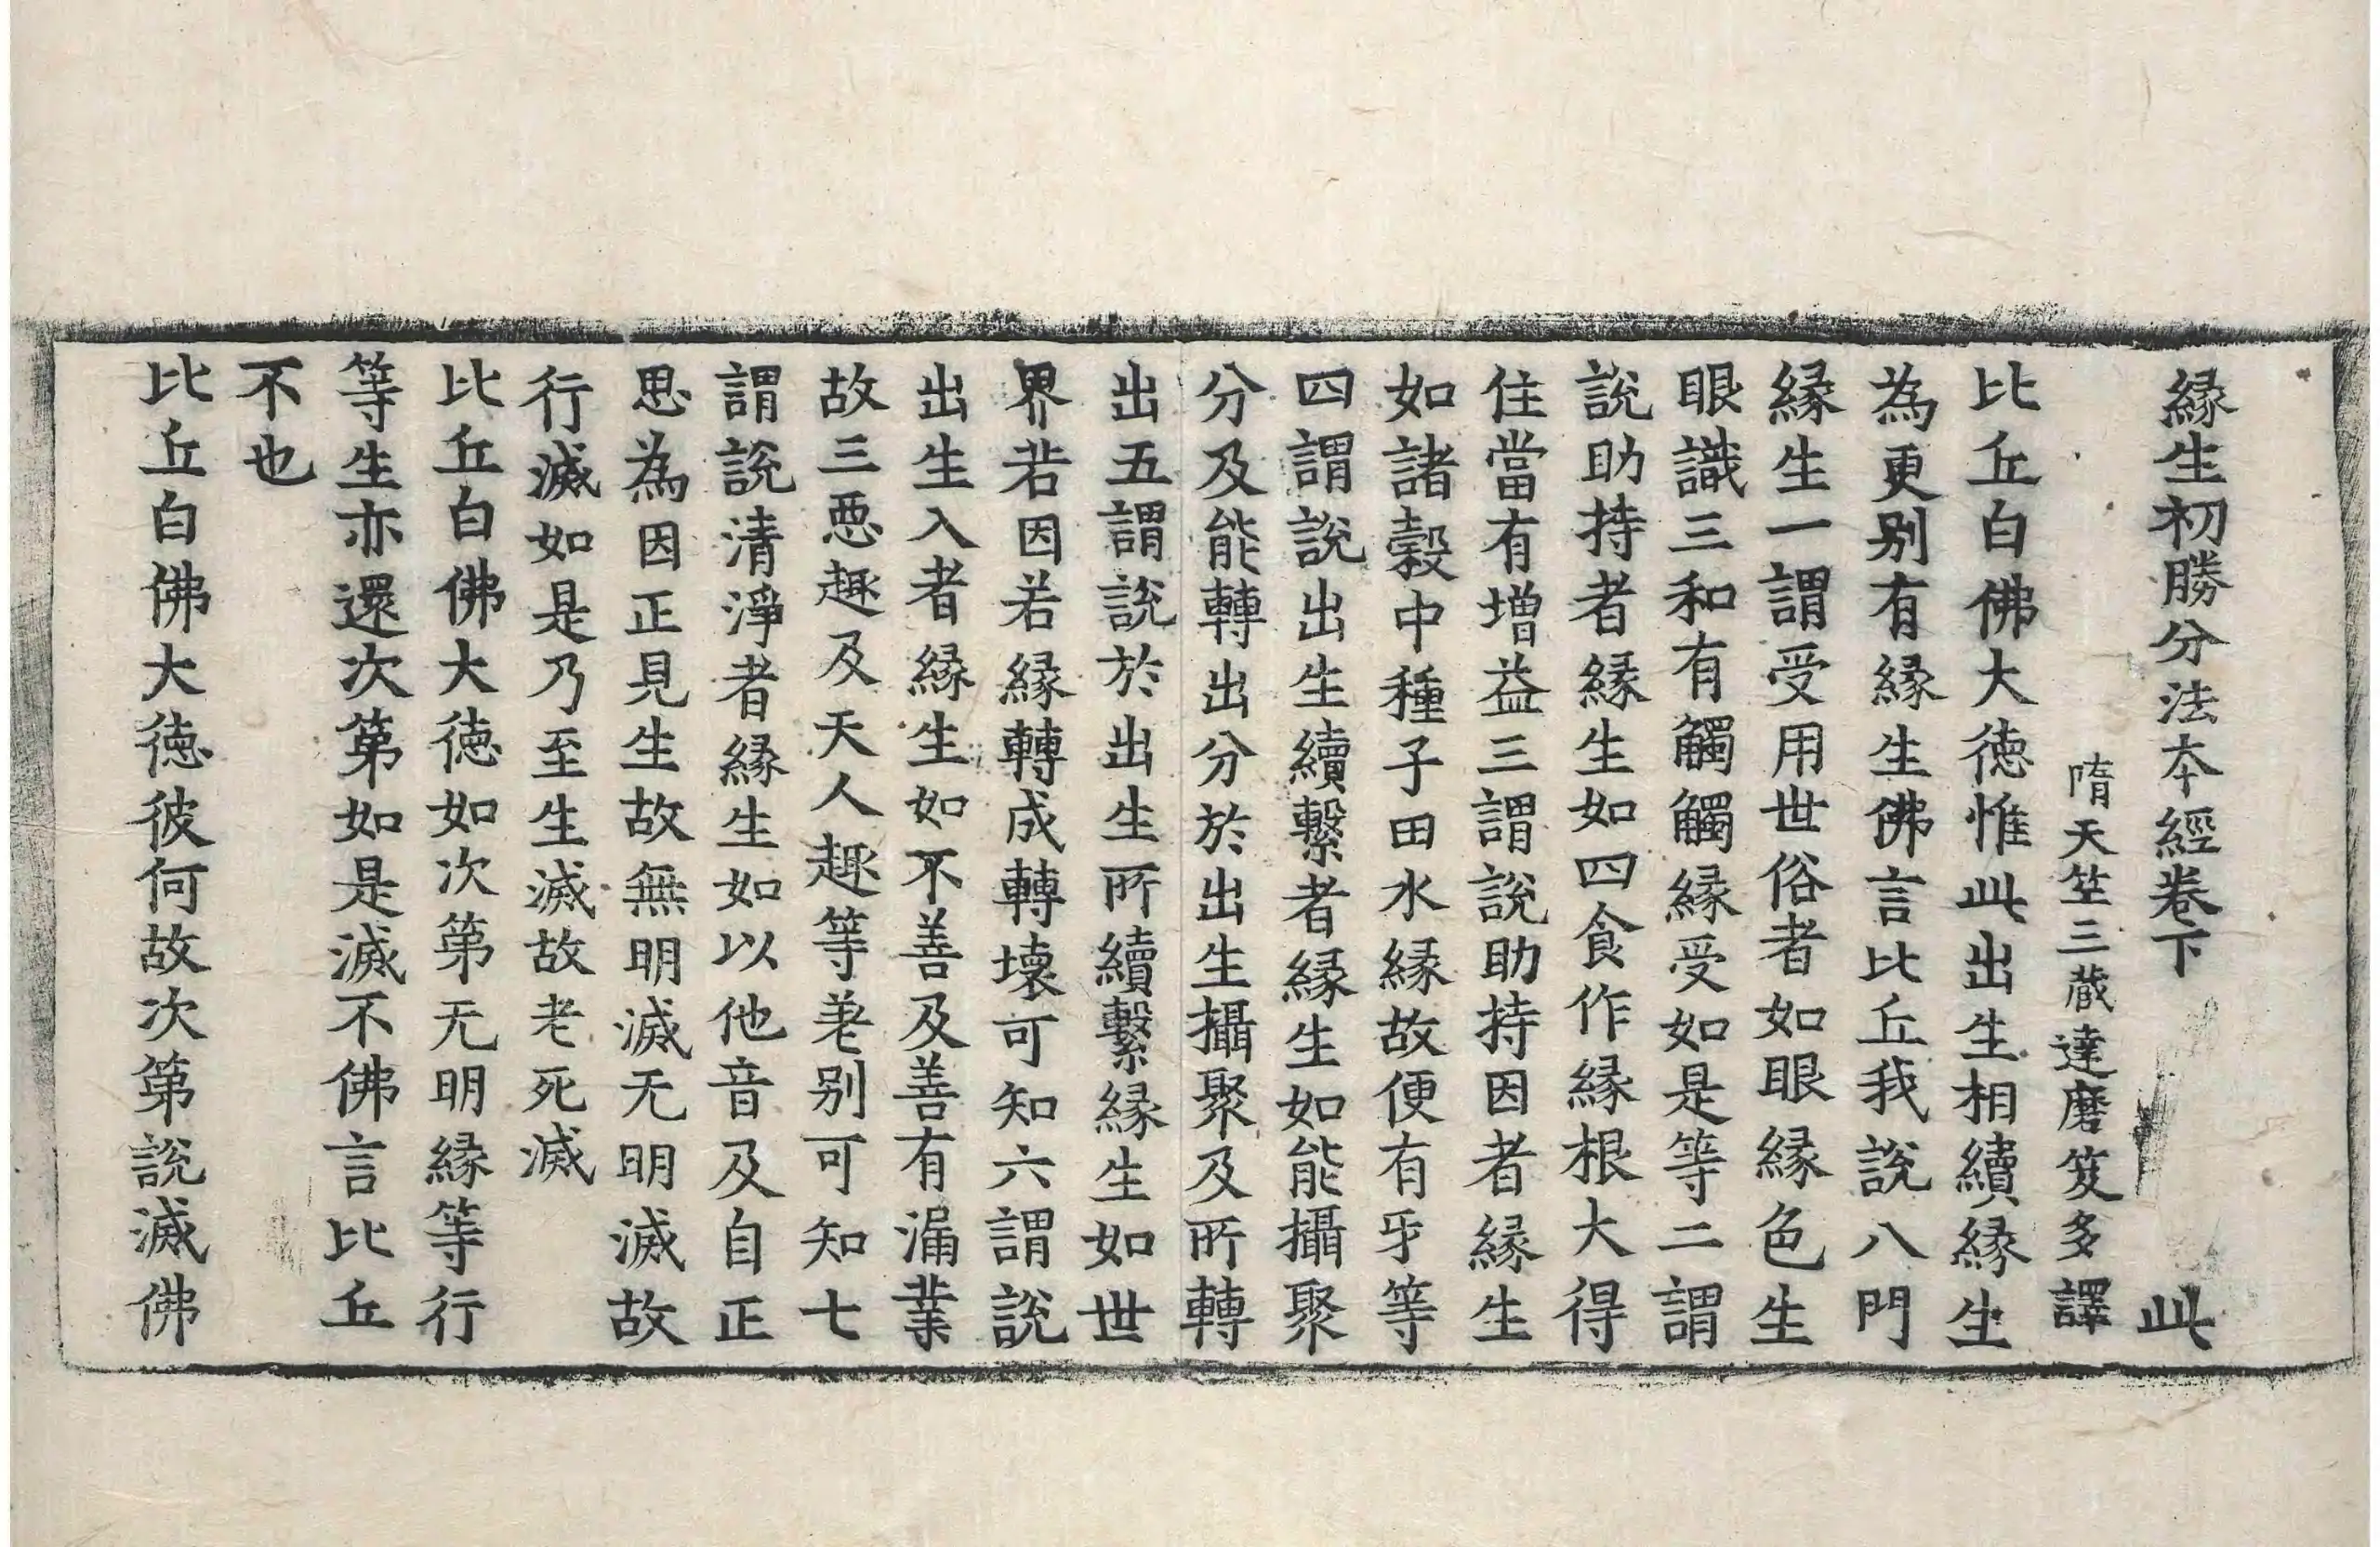 緣生初勝分法本經卷下 此
隋天竺三藏達磨笈多譯
比丘白佛大德惟此出生相續緣生
為更别有緣生佛言比丘我說八門
緣生一謂受用世俗者如眼緣色生
眼識三和有觸觸緣受如是等二謂
說助持者緣生如四食作緣根大得
住當有增益三謂說助持因者緣生
如諸穀中種子田水緣故便有牙等
四謂說出生續繫者緣生如能攝聚
分及能轉出分於出生攝聚及所轉
出五謂說於出生所續繫緣生如世
界若因若緣轉成轉壞可知六謂說
出生入者緣生如不善及善有漏業
故三惡趣及天人趣等差别可知七
謂說清淨者緣生如以他音及自正
思為因正見生故無明滅无明滅故
行滅如是乃至生滅故老死滅
比丘白佛大德如次第无明緣等行
等生亦還次第如是滅不佛言比丘
不也
比丘白佛大德彼何故次第說滅佛